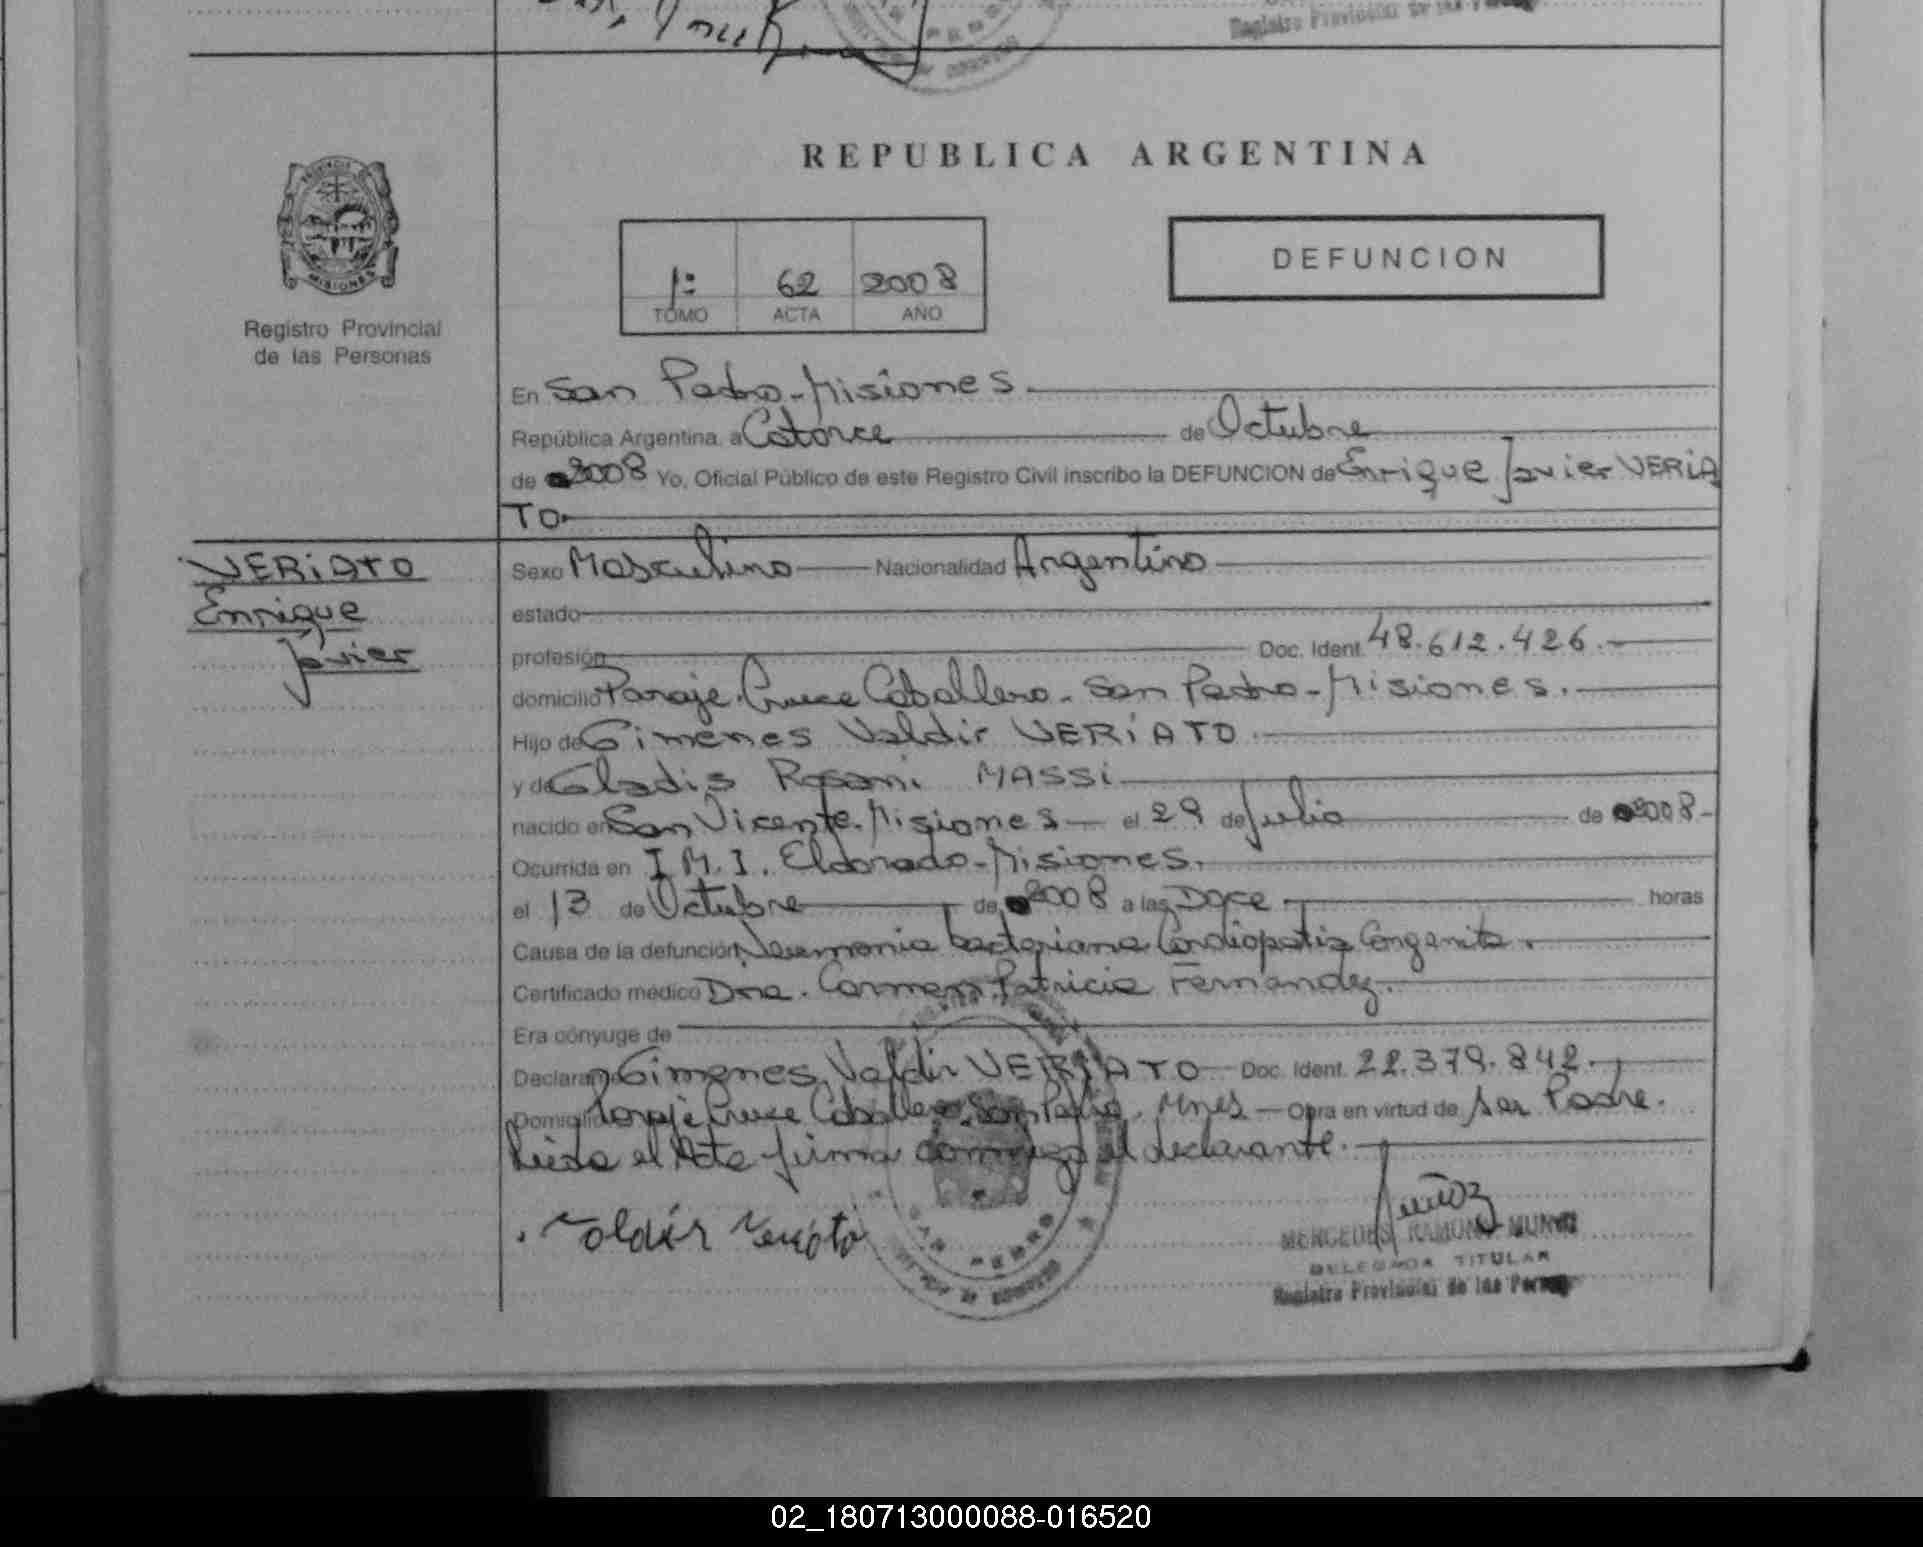 Registro Provincial de las Personas
REPUBLICA ARGENTINA
PROVINCIA
MISIONES
Registro Provincial
de las Personas
1º 62 2008
TOMO ACTA AÑO
DEFUNCION
En San Pedro-Misiones
República Argentina, a Catorce de Octubre
de 2008 Yo, Oficial Público de este Registro Civil inscribo la DEFUNCION de Enrique Javier VERIA
TO
VERIATO
Enrique
Javier
Sexo Masculino Nacionalidad Argentino
estado
profesión Doc. Ident. 48.612.426.
domicilio Paraje Cruce Caballero - San Pedro - Misiones.
Hijo de Gimenes Valdir VERIATO
y de Gladis Rosani MASSi
nacido en San Vicente-Misiones el 29 de Julio de 2008-
Ocurrida en I.M.I. Eldorado-Misiones.
el 13 de Octubre de 2008 a las Doce horas
Causa de la defunción Neumonia bacteriana Cardiopatia Congenita.
Certificado médico Dra. Carmen Patricia Fernandez.
Era cónyuge de
Declarante Gimenes Valdir VERIATO Doc. Ident. 22.379.842.
Domicilio Paraje Cruce Caballero San Pedro. Mnes Obra en virtud de ser Padre.
Leida el Acta firma conmigo el declarante.
Valdir Veriato
SAN PEDRO
Muñoz
MERCEDES RAMONA MUNOZ
DELEGADA TITULAR
Registro Provincial de las Personas
02_180713000088-016520